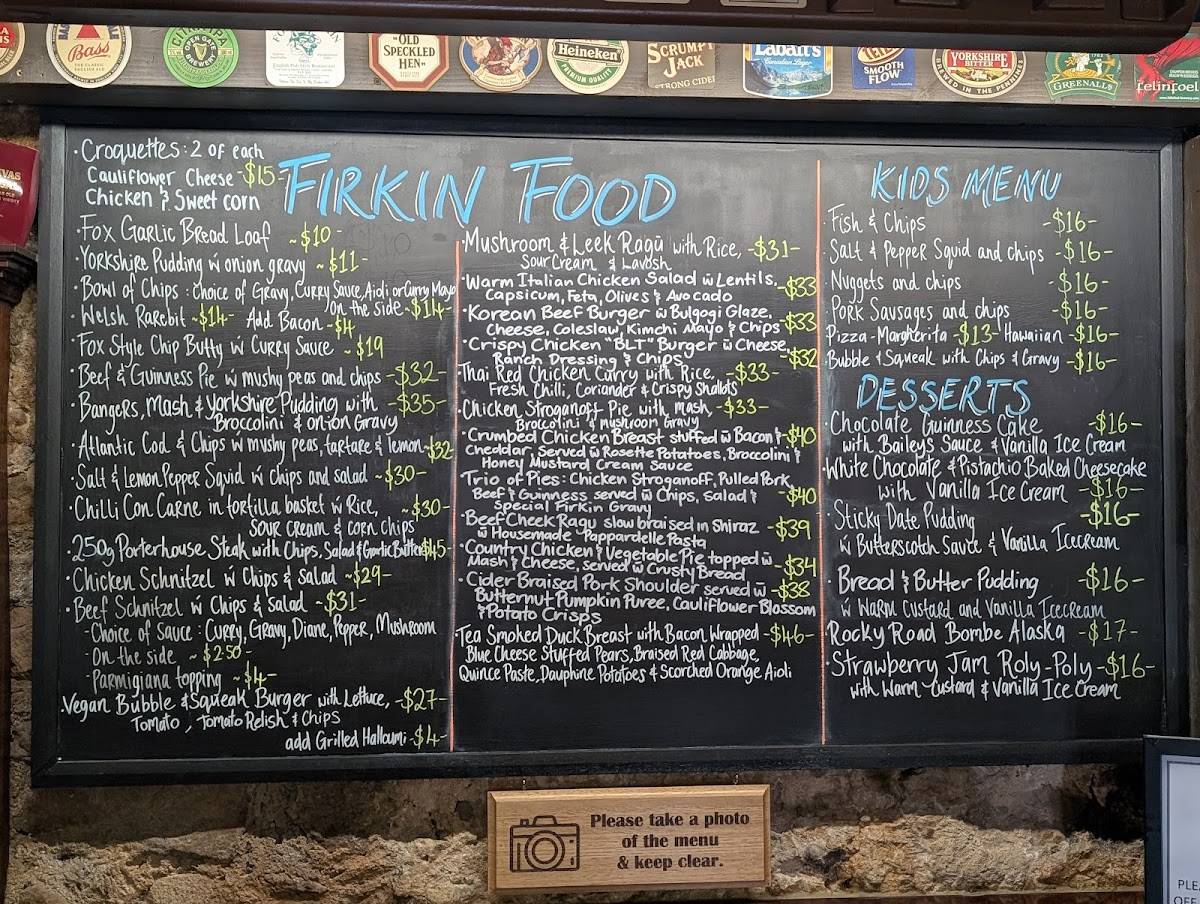 Bass
OPEN GATE BREWERY
"OLD SPECKLED HEN"
Heineken
PREMIUM QUALITY
SCRUMPY JACK
STRONG CIDER
Labatt's
Canadian Lager
SMOOTH FLOW
YORKSHIRE BITTER
GREENALLS
felinfoel
FIRKIN FOOD
·Croquettes: 2 of each
Cauliflower Cheese -$15-
Chicken & Sweet corn
·Fox Garlic Bread Loaf ~$10-
·Yorkshire Pudding w onion gravy ~$11-
·Bowl of Chips: choice of Gravy, Curry Sauce, Aioli or Curry Mayo
on the side -$14-
·Welsh Rarebit ~$14- Add Bacon ~$4
·Fox Style Chip Butty w Curry Sauce ~$19
·Beef & Guinness Pie w mushy peas and chips -$32-
·Bangers, Mash & Yorkshire Pudding with -$35-
Broccolini & onion Gravy
·Atlantic Cod & Chips w mushy peas, tartare & lemon -$32
·Salt & Lemon Pepper Squid w chips and salad ~$30-
·Chilli Con Carne in tortilla basket w Rice, ~$30-
sour cream & corn chips
·250g Porterhouse Steak with Chips, Salad & Garlic Butter $45-
·Chicken Schnitzel w Chips & Salad ~$29-
·Beef Schnitzel w Chips & Salad -$31-
-Choice of Sauce: Curry, Gravy, Diane, Pepper, Mushroom
-On the side ~$2.50-
-Parmigiana topping ~$4-
·Vegan Bubble & Squeak Burger with Lettuce, -$27-
Tomato, Tomato Relish & Chips
add Grilled Halloumi -$4-
·Mushroom & Leek Ragū with Rice, -$31-
Sour Cream & Lavosh
·Warm Italian Chicken Salad w Lentils, -$33
Capsicum, Feta, Olives & Avocado
·Korean Beef Burger w Bulgogi Glaze, -$33
Cheese, Coleslaw, Kimchi Mayo & Chips
·Crispy Chicken "BLT" Burger w Cheese, -$32
Ranch Dressing & Chips
·Thai Red Chicken Curry with Rice, -$33-
Fresh Chilli, Coriander & Crispy Shallots
·Chicken Stroganoff Pie with mash, -$33-
Broccolini & mushroom Gravy
·Crumbed Chicken Breast stuffed w Bacon & -$40
Cheddar, Served w Rosette Potatoes, Broccolini &
Honey Mustard Cream Sauce
·Trio of Pies: Chicken Stroganoff, Pulled Pork,
Beef & Guinness served w Chips, Salad & -$40
Special Firkin Gravy
·Beef Cheek Ragu slow braised in Shiraz -$39
w Housemade Pappardelle Pasta
·Country Chicken & Vegetable Pie topped w -$34
Mash & Cheese, served w Crusty Bread
·Cider Braised Pork Shoulder served w -$38
Butternut Pumpkin Puree, Cauliflower Blossom
& Potato Crisps
Tea Smoked Duck Breast with Bacon Wrapped -$46-
Blue Cheese Stuffed Pears, Braised Red Cabbage,
Quince Paste, Dauphine Potatoes & Scorched Orange Aioli
KIDS MENU
·Fish & Chips -$16-
·Salt & Pepper Squid and Chips -$16-
·Nuggets and chips -$16-
·Pork Sausages and chips -$16-
Pizza-Margherita -$13- Hawaiian -$16-
·Bubble & Squeak with Chips & Gravy -$16-
DESSERTS
·Chocolate Guinness Cake -$16-
with Baileys Sauce & Vanilla Ice Cream
·White Chocolate & Pistachio Baked Cheesecake
with Vanilla Ice Cream -$16-
·Sticky Date Pudding -$16-
w Butterscotch Sauce & Vanilla Icecream
·Bread & Butter Pudding -$16-
w Warm Custard and Vanilla Icecream
·Rocky Road Bombe Alaska -$17-
·Strawberry Jam Roly-Poly -$16-
with Warm Custard & Vanilla Ice Cream
Please take a photo
of the menu
& keep clear.